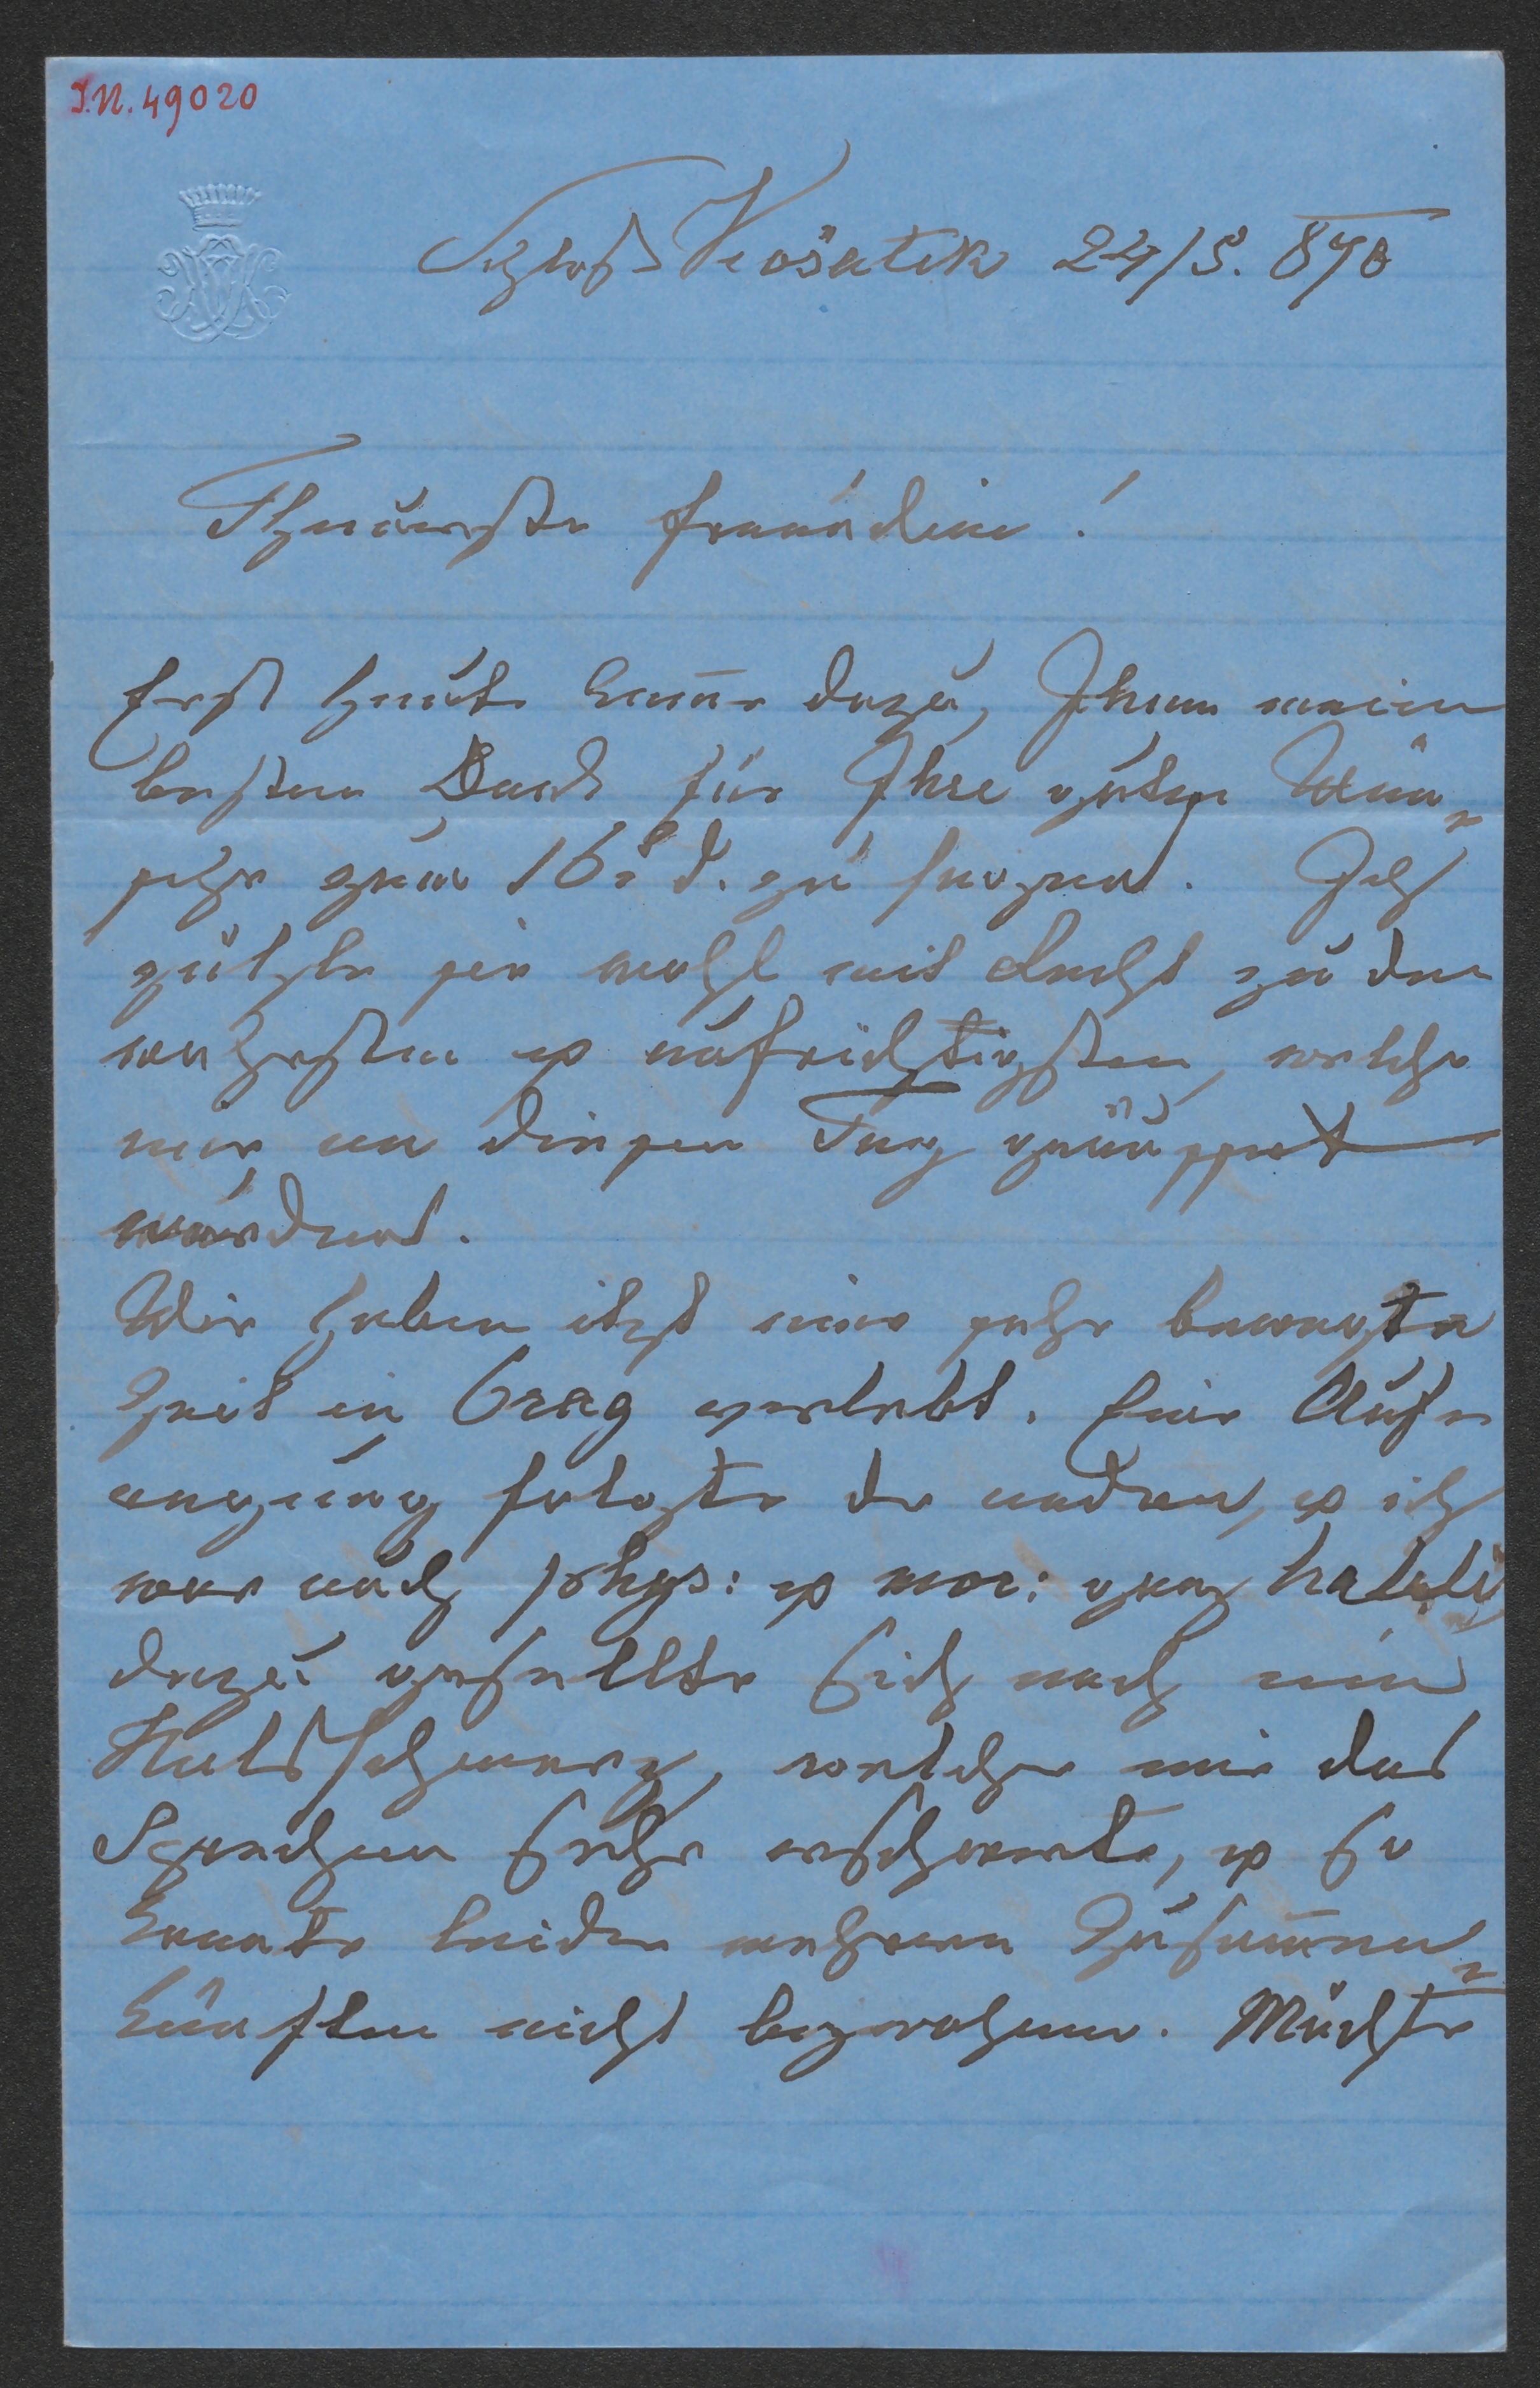 I.N. 49020
Schloß Košatek 24/5. 890
Theuerste Freundin!
Erst heute kom̄e dazu, Ihnen meinen
besten Dank für Ihre guten Wün=
sche zum 16. d. zu sagen. Ich
zählte sie wohl mit Recht zu den
wahrsten & aufrichtigsten, welche
mir an diesem Tag geäussert
wurden.
Wir haben itzt eine sehr bewegte
Zeit in Prag verlebt. Eine Auf=
regung folgte der andren, & ich
war auch phys: & mor: ganz
dazu gesellte sich noch ein
Halsschmerz, welcher mir das
Sprechen sehr erschwerte, & so
konnte leider mehreren Zusam̄en=
künften nicht beiwohnen. Möchte